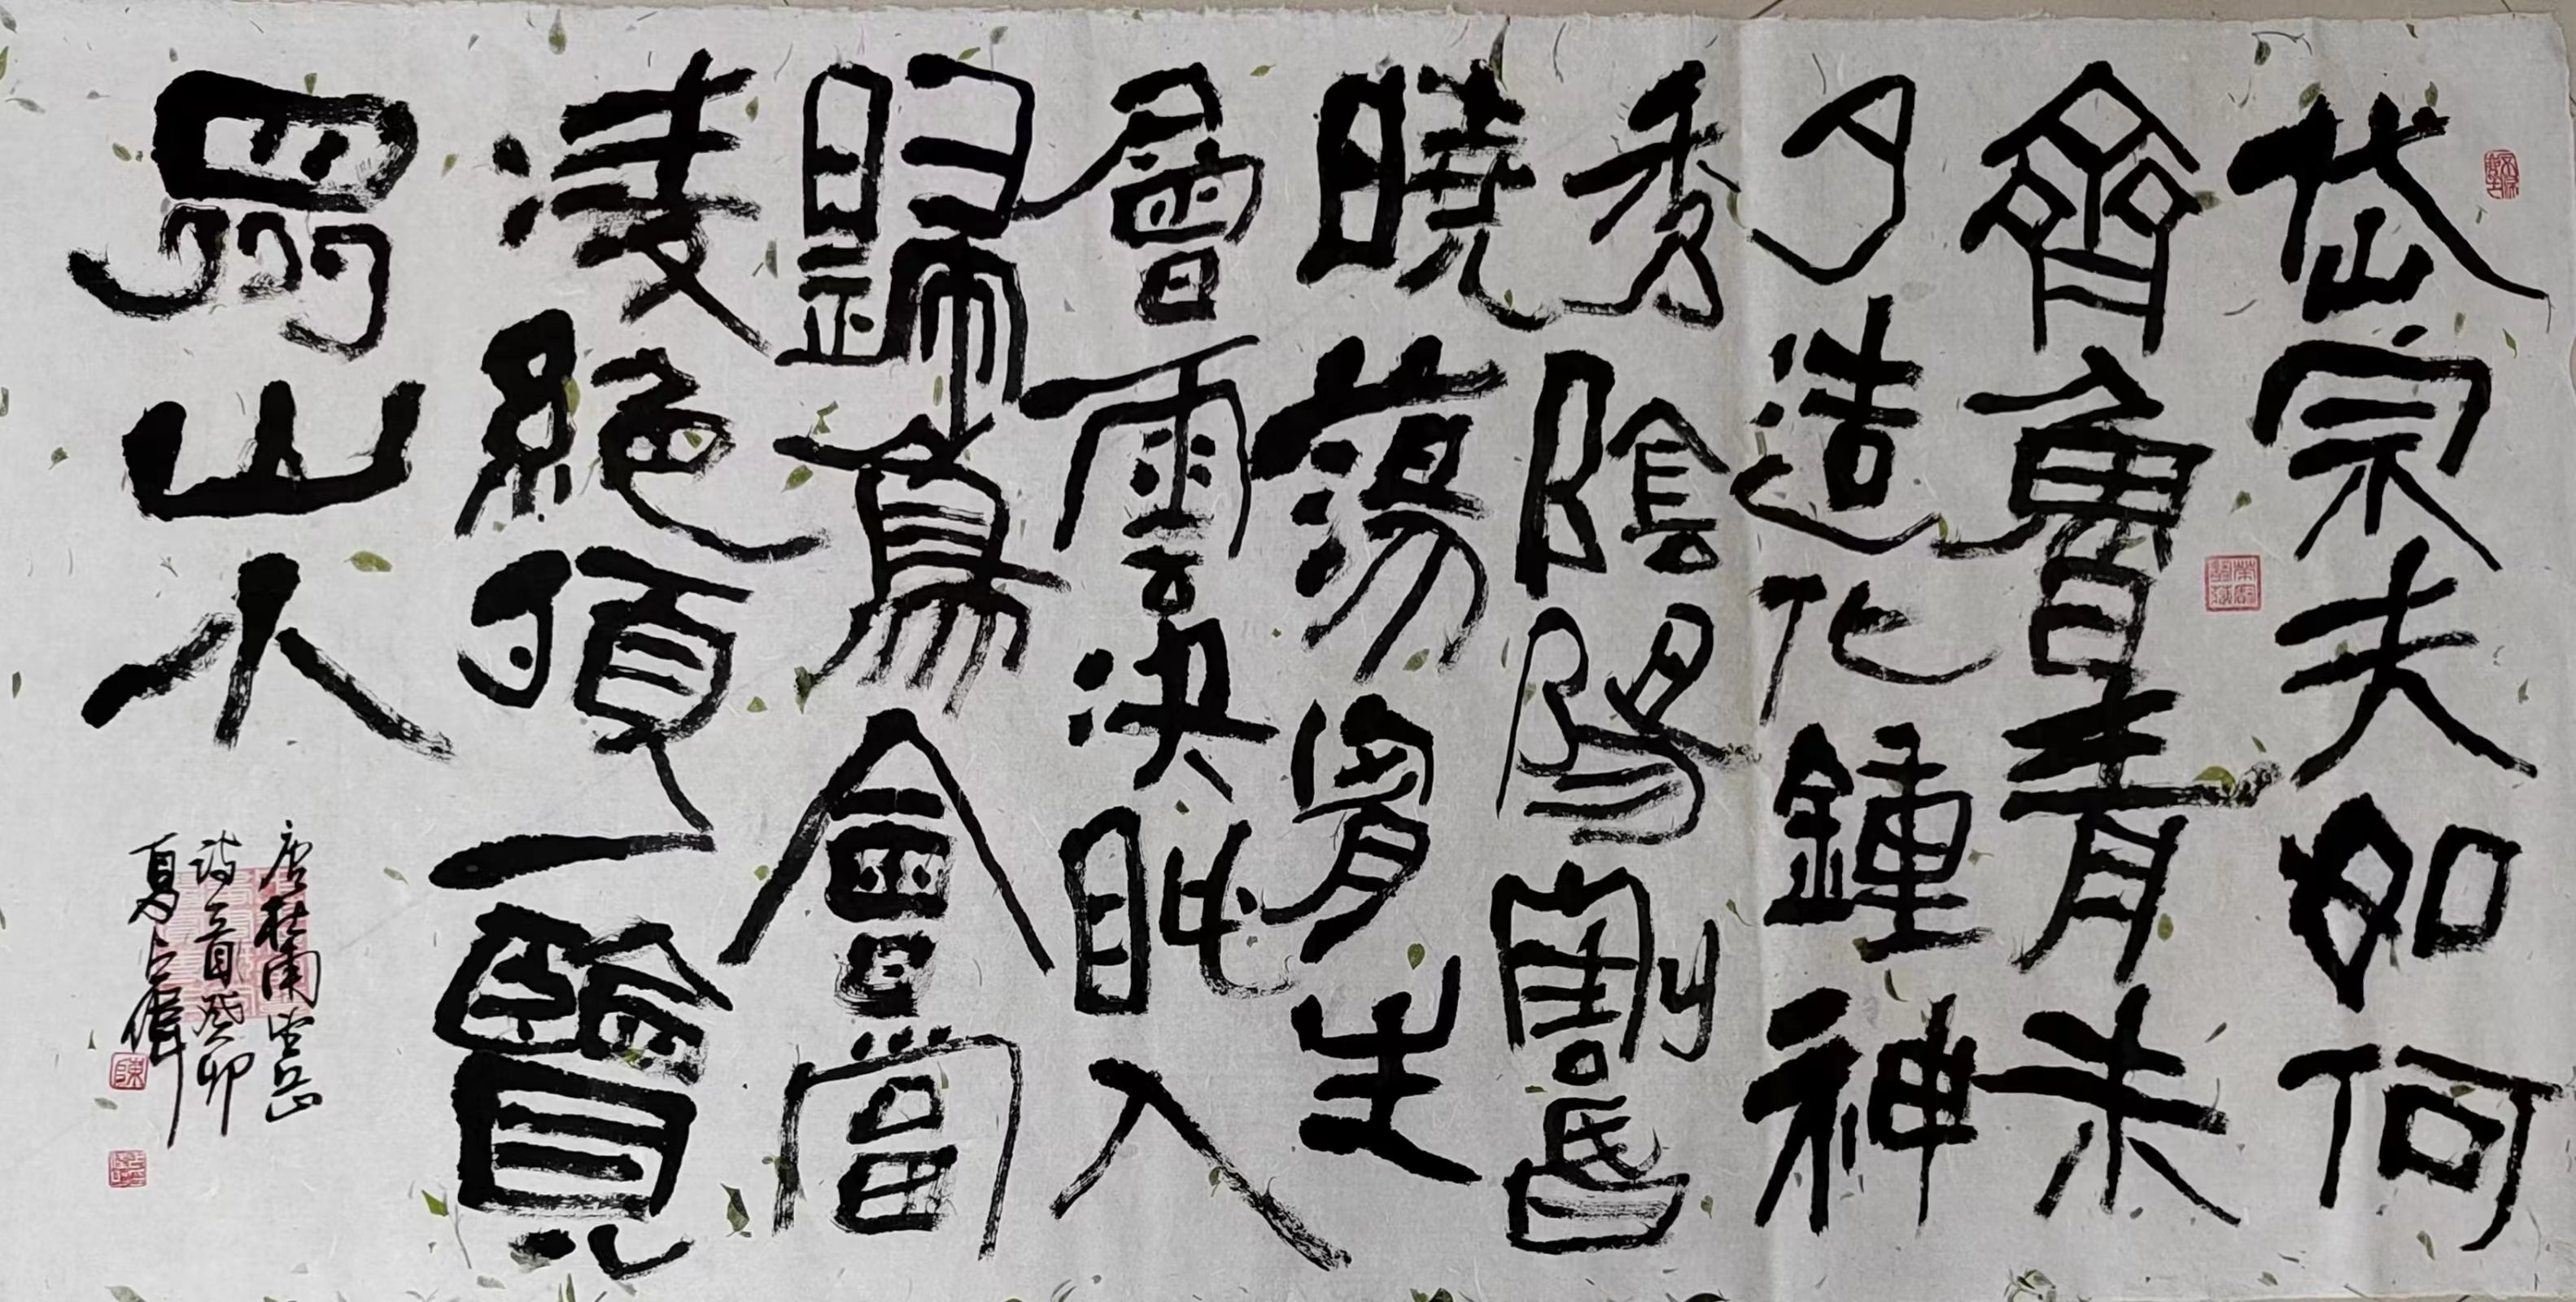 岱宗夫如何
齊魯青未
了造化鍾神
秀陰陽割昏
曉蕩胷生
層雲決眦入
歸鳥會當
凌絕頂一覽
眾山小
唐杜甫望岳
诗一首癸卯
夏
陳